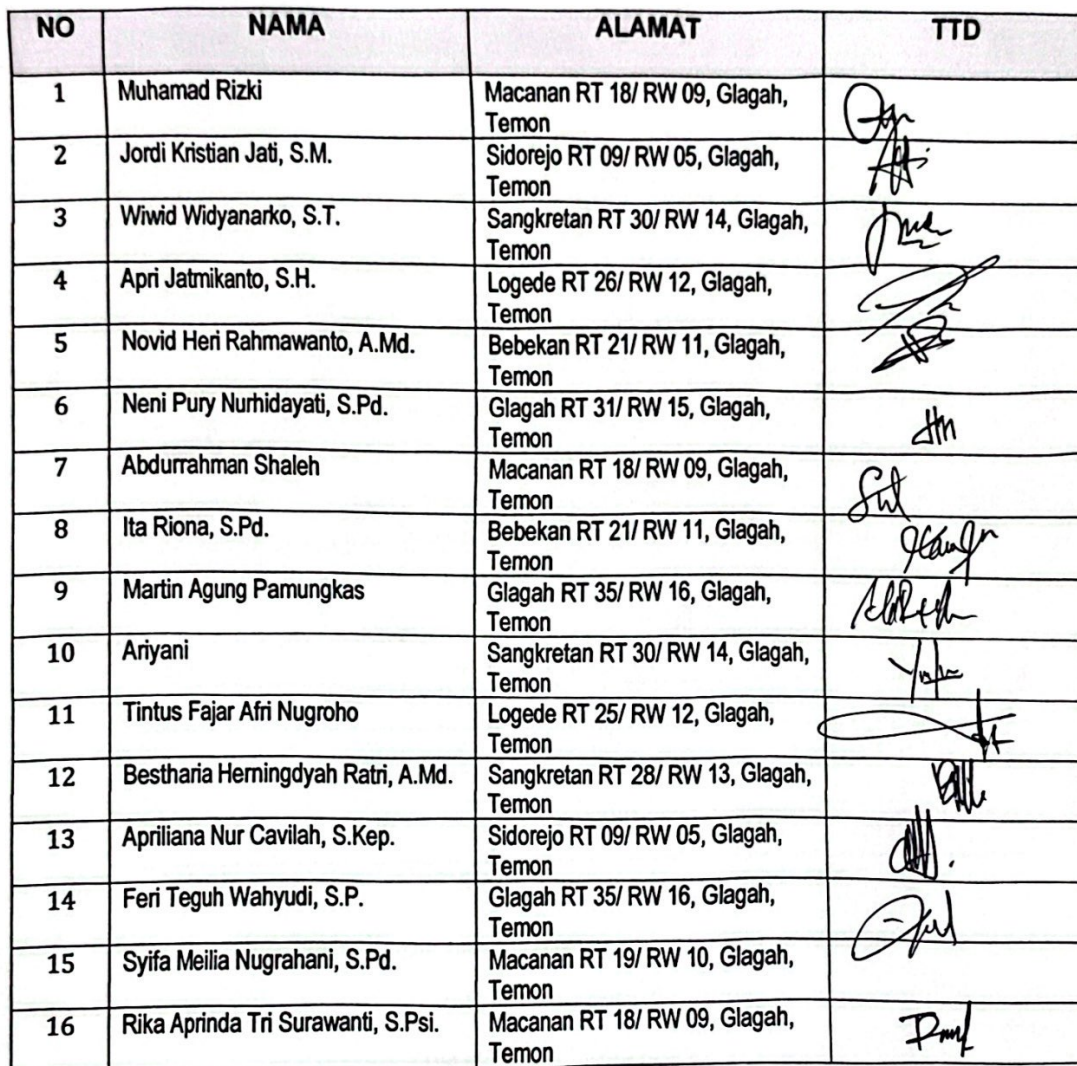 NO NAMA ALAMAT TTD
1 Muhamad Rizki Macanan RT 18/ RW 09, Glagah,
Temon
2 Jordi Kristian Jati, S.M. Sidorejo RT 09/ RW 05, Glagah,
Temon
3 Wiwid Widyanarko, S.T. Sangkretan RT 30/ RW 14, Glagah,
Temon
4 Apri Jatmikanto, S.H. Logede RT 26/ RW 12, Glagah,
Temon
5 Novid Heri Rahmawanto, A.Md. Bebekan RT 21/ RW 11, Glagah,
Temon
6 Neni Pury Nurhidayati, S.Pd. Glagah RT 31/ RW 15, Glagah,
Temon
7 Abdurrahman Shaleh Macanan RT 18/ RW 09, Glagah,
Temon
8 Ita Riona, S.Pd. Bebekan RT 21/ RW 11, Glagah,
Temon
9 Martin Agung Pamungkas Glagah RT 35/ RW 16, Glagah,
Temon
10 Ariyani Sangkretan RT 30/ RW 14, Glagah,
Temon
11 Tintus Fajar Afri Nugroho Logede RT 25/ RW 12, Glagah,
Temon
12 Bestharia Herningdyah Ratri, A.Md. Sangkretan RT 28/ RW 13, Glagah,
Temon
13 Apriliana Nur Cavilah, S.Kep. Sidorejo RT 09/ RW 05, Glagah,
Temon
14 Feri Teguh Wahyudi, S.P. Glagah RT 35/ RW 16, Glagah,
Temon
15 Syifa Meilia Nugrahani, S.Pd. Macanan RT 19/ RW 10, Glagah,
Temon
16 Rika Aprinda Tri Surawanti, S.Psi. Macanan RT 18/ RW 09, Glagah,
Temon